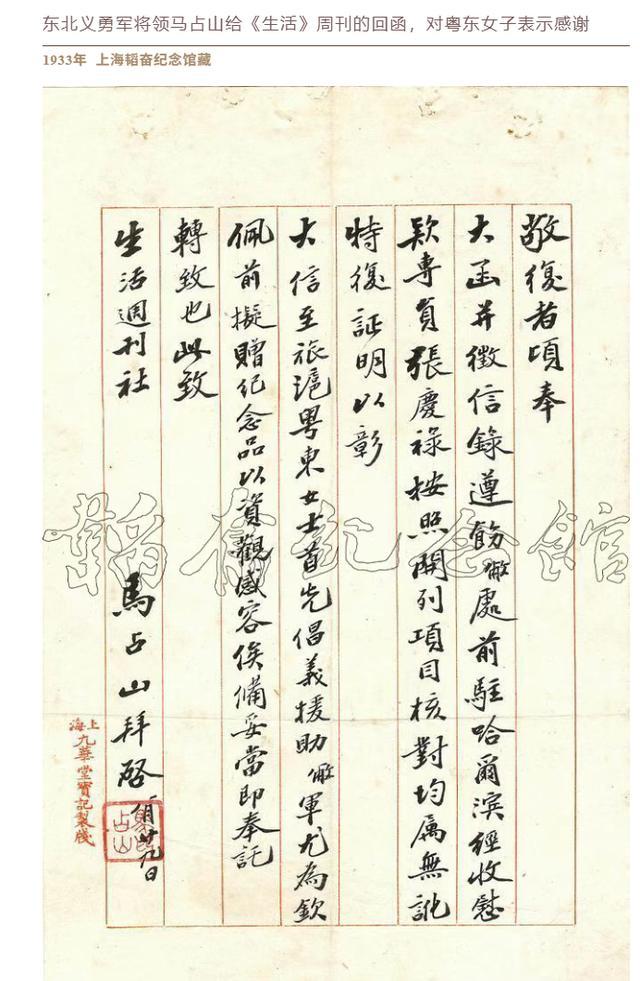 东北义勇军将领马占山给《生活》周刊的回函，对粤东女子表示感谢
1933年 上海韬奋纪念馆藏
敬復者頃奉
大函并徵信錄遵飭敝處前駐哈爾濱經收慰
款專員張慶祿按照開列項目核對均属無訛
特復証明以彰
大信至旅滬粤東女士首先倡義援助敝軍尤為欽
佩前擬贈纪念品以資觀感容俟備妥當即奉託
轉致也此致
生活週刊社
馬占山拜啓 月廿九日
馬占山
上海九華堂寳記製牋
韜奮紀念館